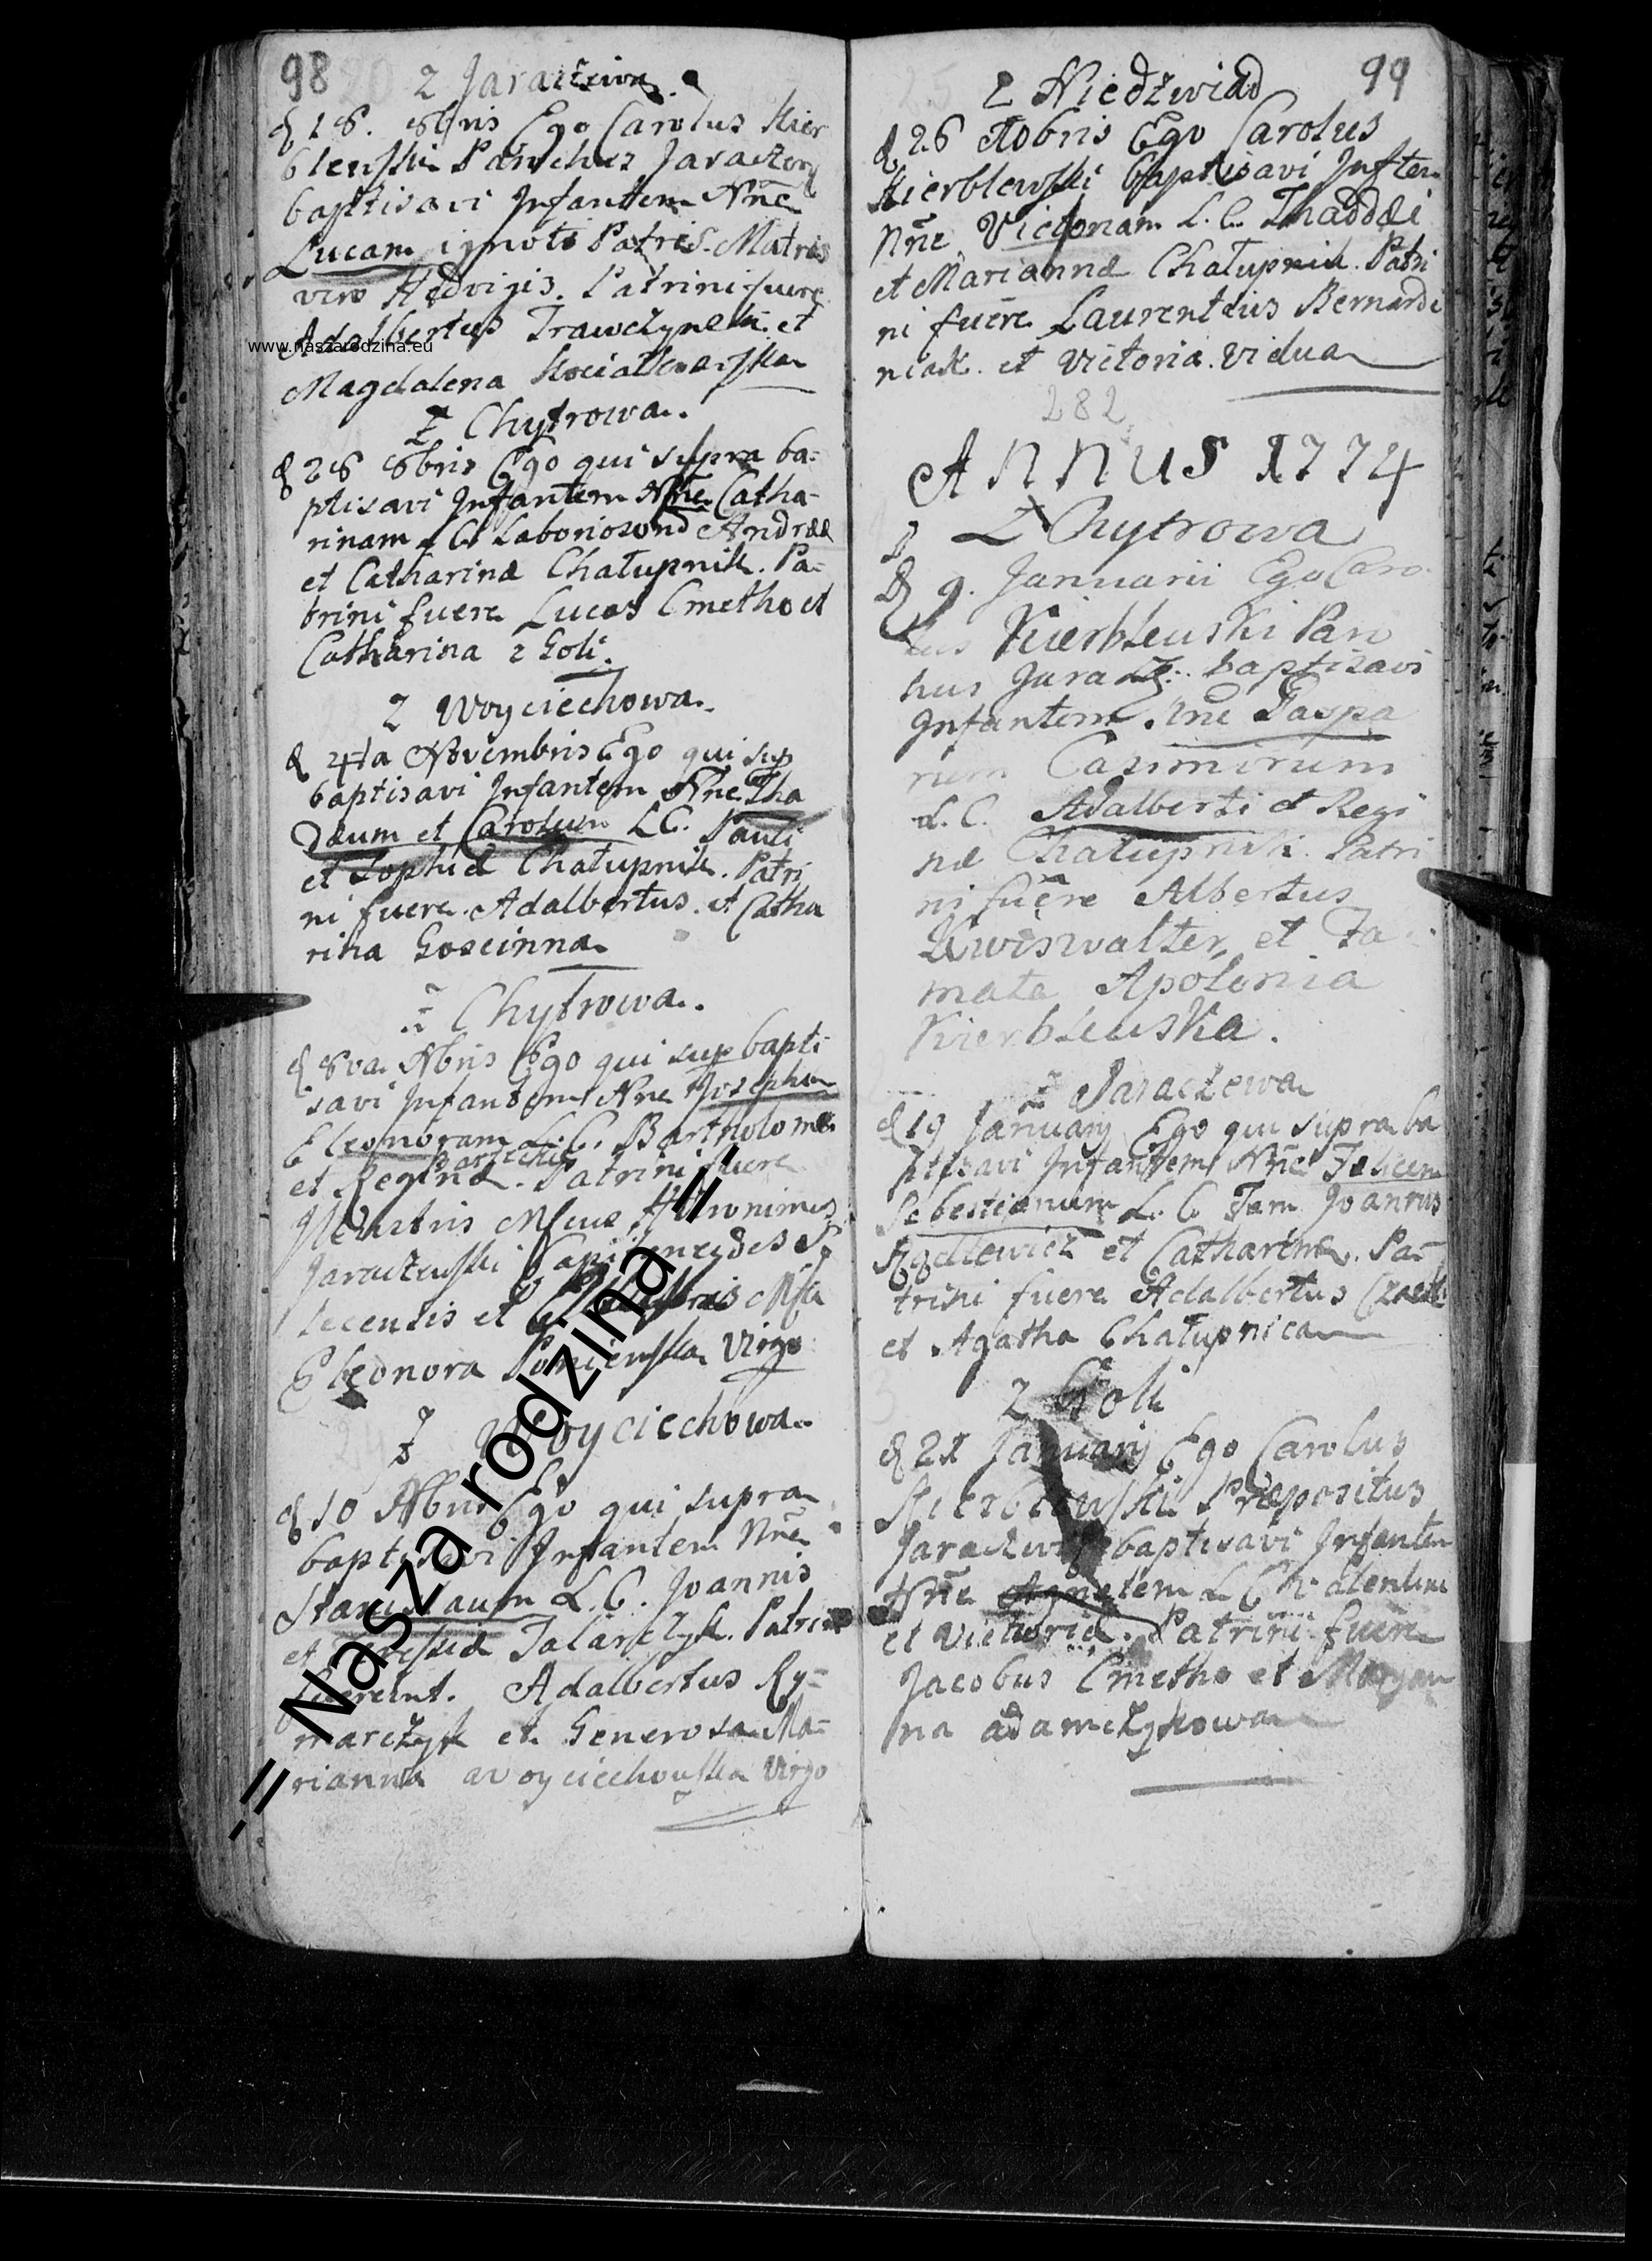 98
z Jaraczewa.
d 18. 8bris Ego Carolus Kier
blewski Parochus Jaraczew
baptisavi Infantem Nne
Lucam ignoti Patris. Matris
vero Hedvigis. Patrini fuere
Adalbertus Trawczynski et
www.naszarodzina.eu
Magdalena
z Chytrowa.
d 28 8bris Ego qui supra ba-
ptisavi Infantem Nne Catha-
rinam L C Andreæ
et Catharinæ Chałupnik. Pa-
trini fuere Lucas Cmetho et
Catharina z Goli.
z Woyciechowa.
d 4ta Novembris Ego qui sup
baptisavi Infantem Nne Tha
dæum et Carolum LC. Pauli
et Sophiæ Chałupnik. Patri
ni fuere. Adalbertus. et Catha
rina Goscinna
z Chytrowa.
d 8va. Nbris Ego qui sup bapti
savi Infantem Nne Josepham
Eleonoram L. C. Bartholomei
et Reginæ. Patrini fuere
Illustris Hieronimus
Jaraczewski
et
Eleonora Virgo
z Woyciechowa.
d 10 Nbris Ego qui supra
baptisavi Infantem Nne
Stanislaum L. C. Joannis
et Talarczyk. Patrini
fuerunt. Adalbertus Ry-
marczyk et Generosa Ma-
rianna Woyciechowska Virgo
-= Nasza rodzina =-
99
z Niedzwiad
d 26 Ego Carolus
Kierblewski baptisavi Inften
Nne Victoriam L. C. Thaddæi
et Mariannæ Chałupnik. Patri
ni fuere Laurentius Bernardi
niak. et Victoria. Vidua
282
ANNUS 1774
Z Chytrowa
D 9. Januarii Ego Caro
lus Kierbleuski Paro
hus Jaracz. baptisavi
Infantem. Nne Gaspa
rum Casimirum
L. C. Adalberti et Regi
næ Chałupnik. Patri
ni fuere Albertus
et Fa
mata Apolonia
Kierbleuska.
z Jaraczewa
d 19 January Ego qui supra ba
ptisavi Infantem Nne Felicem
Sebestianum L. C Fam Joannis
et Catharinæ. Pa-
trini fuere Adalbertus
et Agatha Chałupnica
z Goli
d 21 January Ego Carolus
Kierblewski Præpositus
baptisavi Infantem
Nne Agnetem L C Valentini
et Victoriæ. Patrini fuere
Jacobus Cmetho et Maryan
na adamczykowa